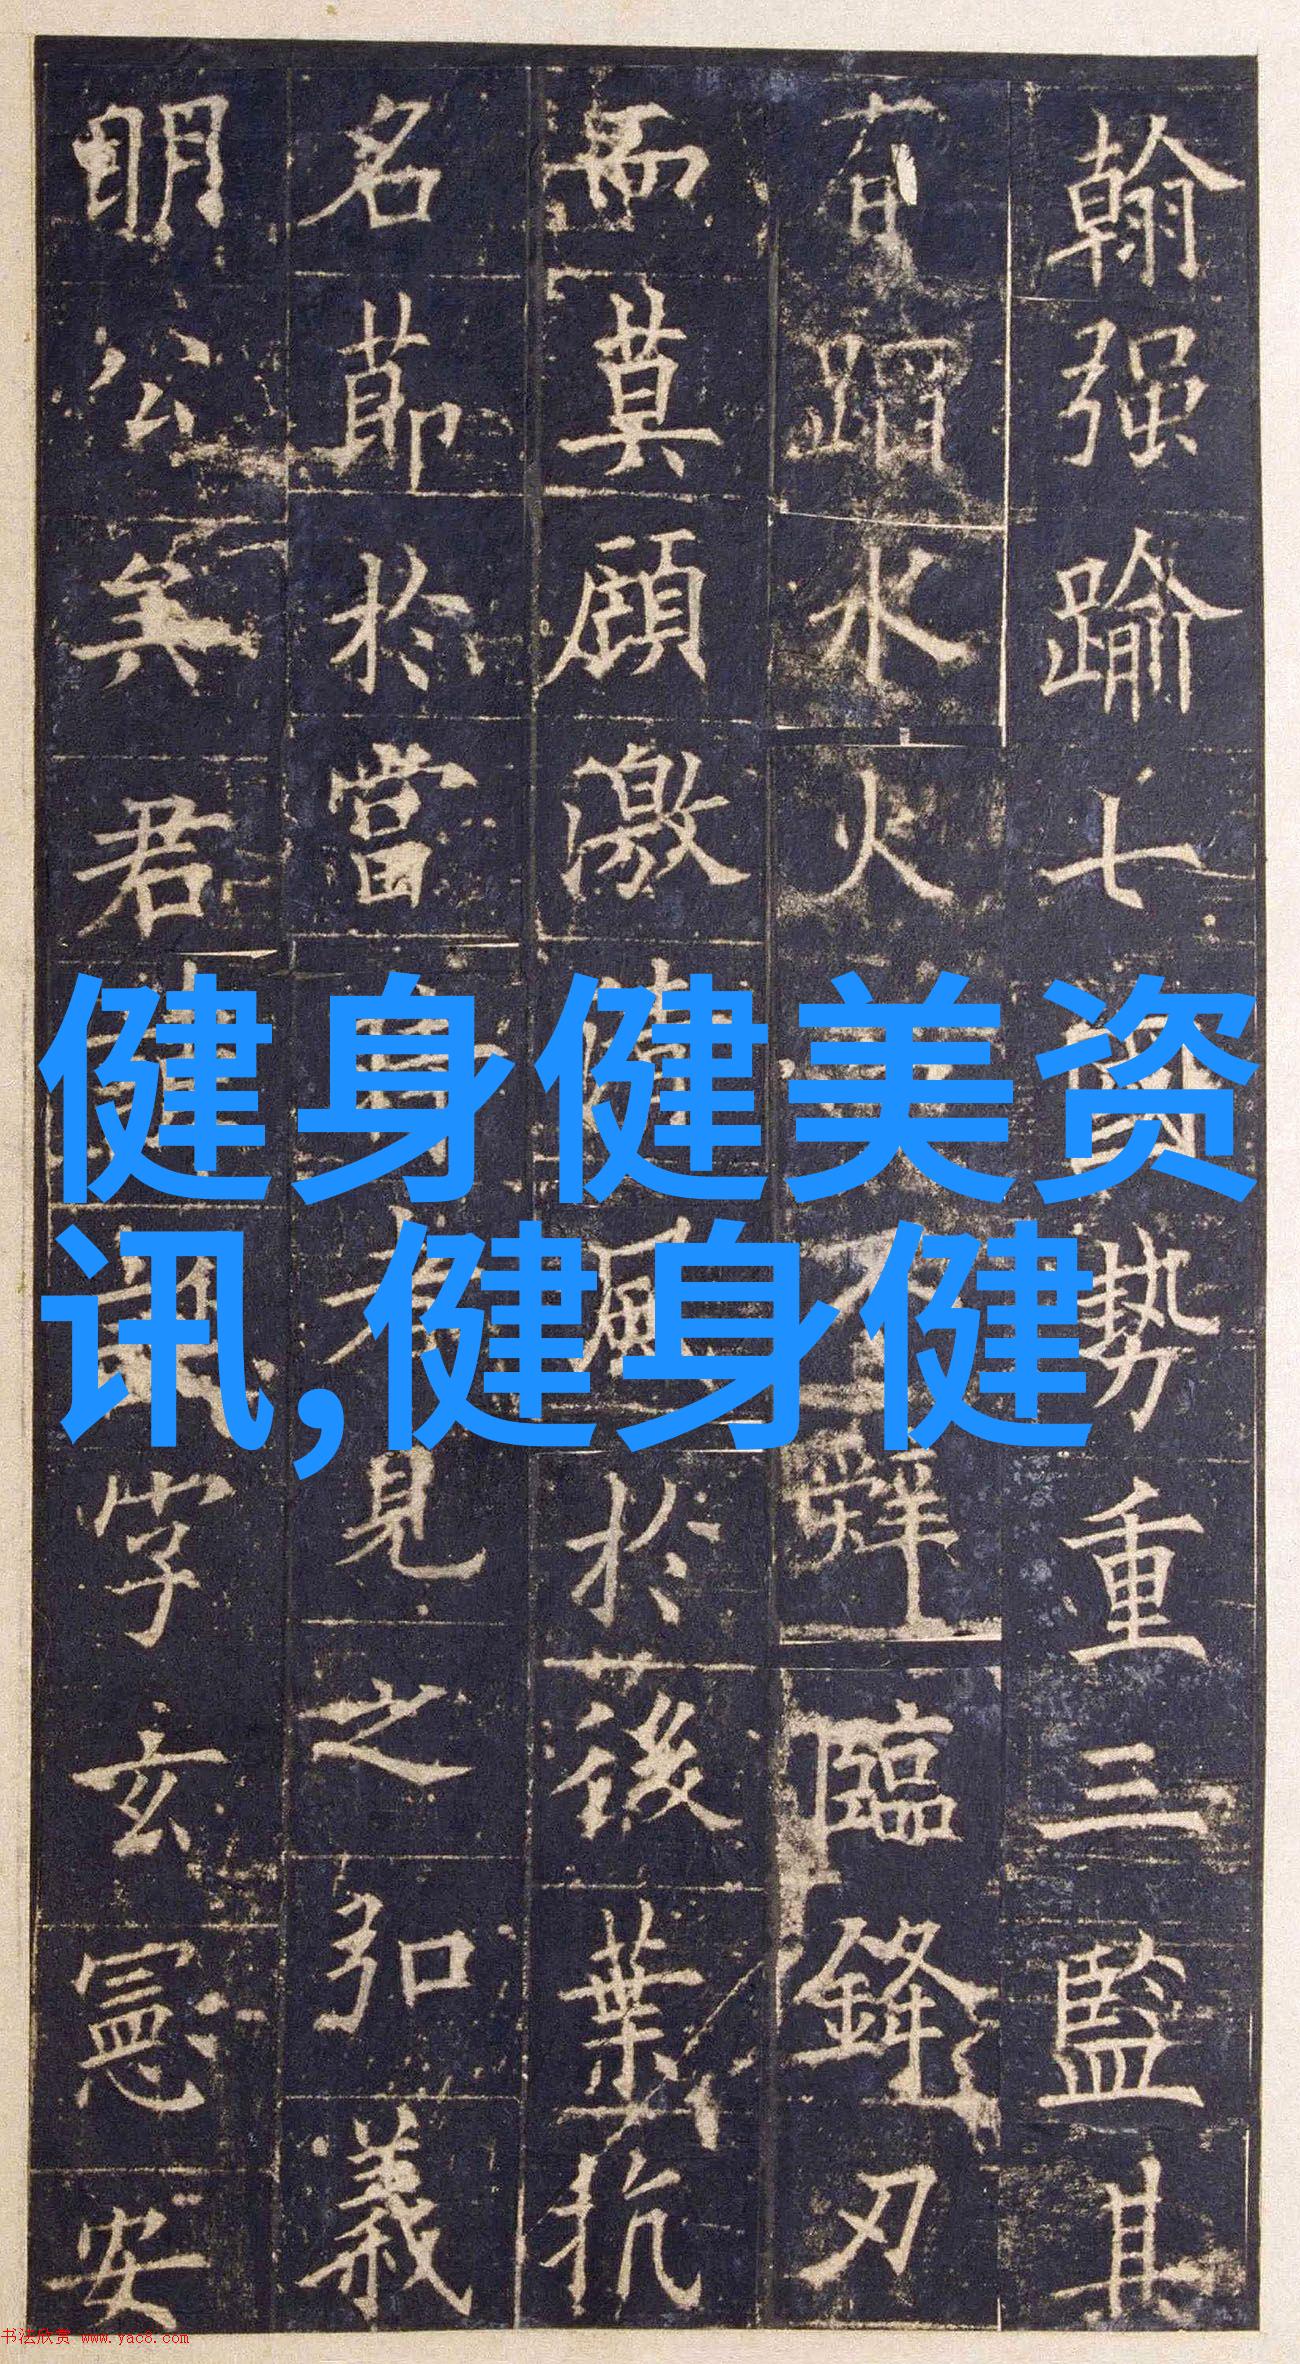 翰强踰七國勢重三監其
有蹈水火辭臨鋒刃
而莫顧激風於後葉抗
名節於當者見之弘義
明公矣君字玄憲安
健身健美资
讯,健身健
书法欣赏 www.yac8.com